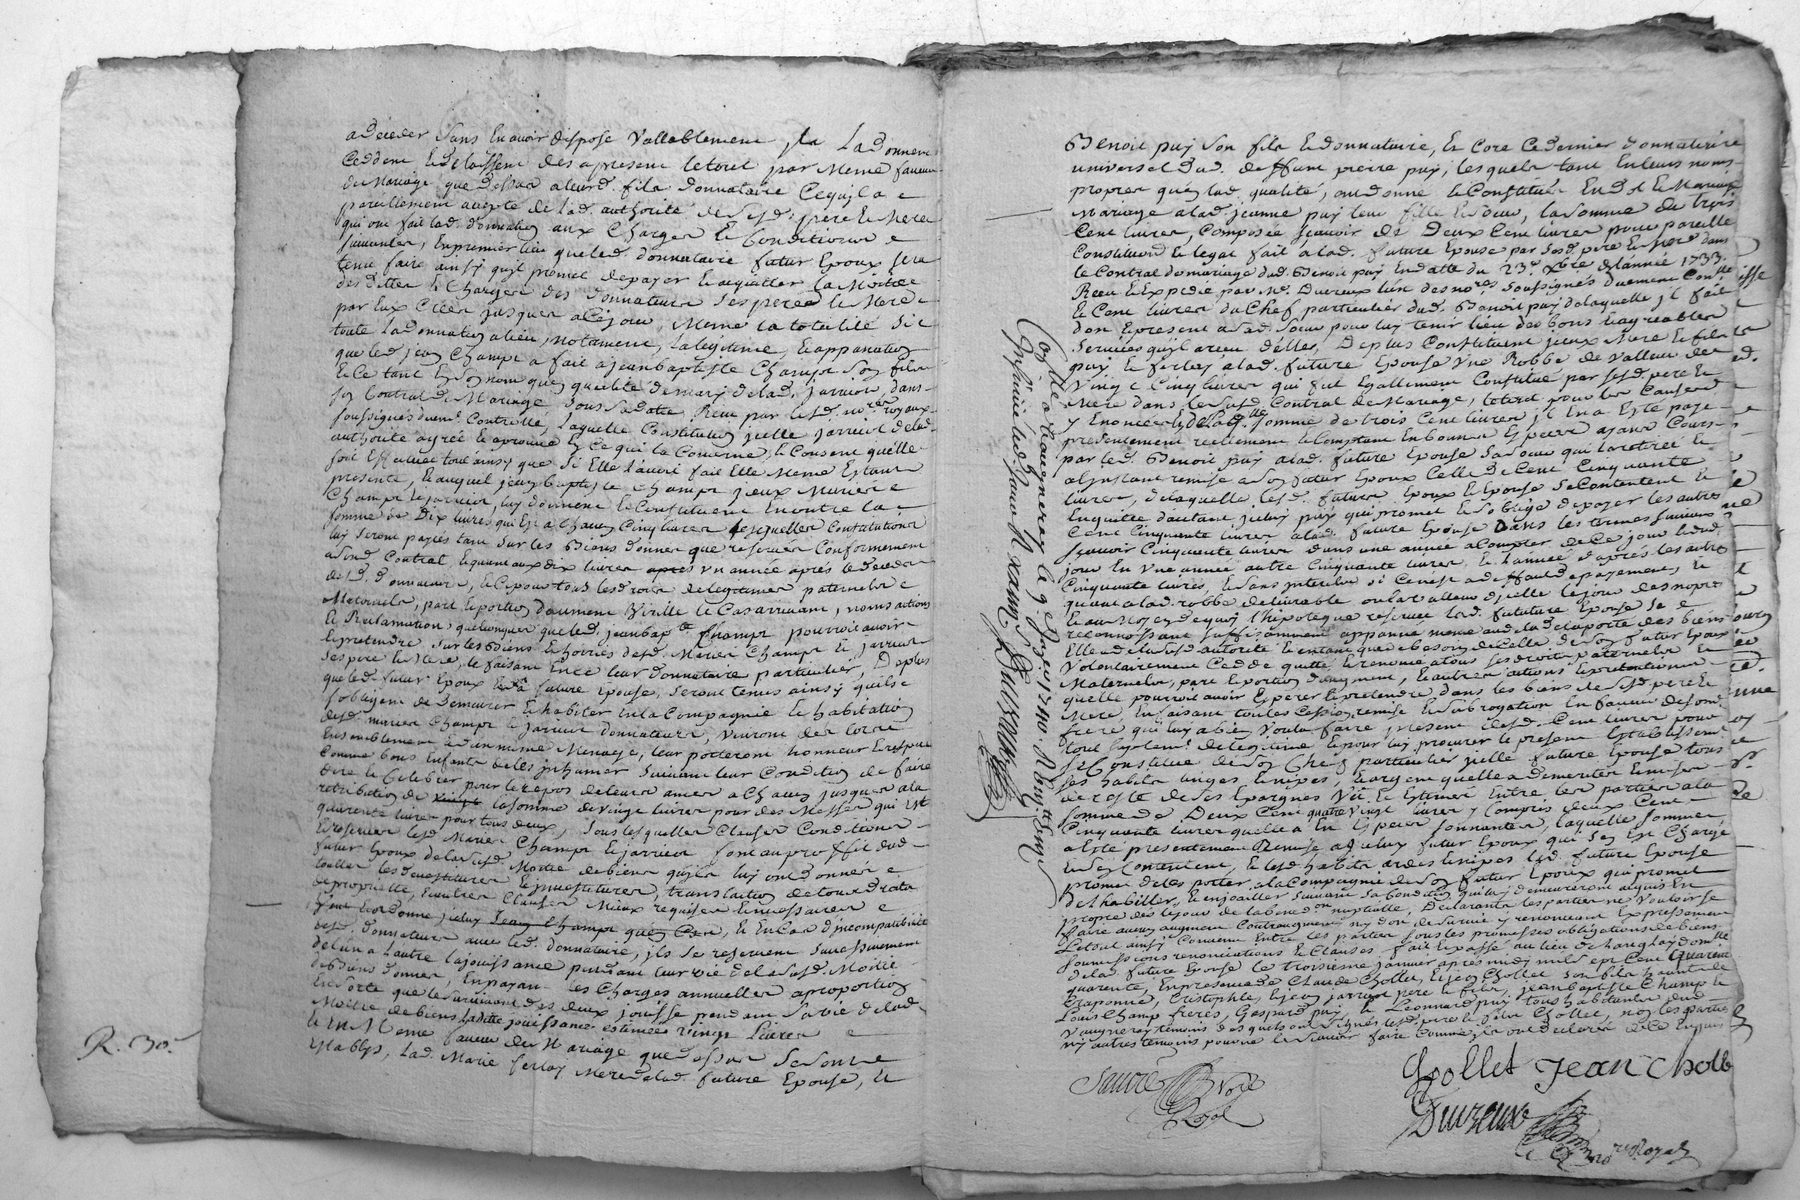 a deceder sans en avoir dispose vallablement, la Ladonnent
Ceddent & delaissent des a present le tout par Meme faveur
de Mariage que dessus aleurd. fils donnataire Ce quil a
pareillement accepte de lad. authorité de sesd. pere & Mere
qui ont fait lad. donnation aux Charges & Conditions
suivantes, en premier lieu que led. donnataire futur Epoux sera
tenu faire ainsy quil promet de payer & acquitter la Moitiée
des dettes & Charges des donnateurs ses pere & Mere
par Eux Créés jusques a Ce jour, Meme la totalité si
toute la donnation a lieu, notament, la legitime, & appanation
que led. jean Champt a fait a jean baptiste Champt son fils
& Ce tant En son nom que En qualité de mary de lad. jarricot dans
son Contrat de Mariage, sous sa datte, Receu par lesd. no.res royaux
soussignés duem.t Controllé, laquelle Constitution jcelle jarricot de lad.
authorité agrée & aprouve En Ce qui la Concerne, & Consent quelle
soit Effectuée tout ainsy que si Elle l'avoit fait Elle Meme Estant
presente, & auquel jean baptiste Champt jceux Mariés
Champt & jarricot, luy donnent & Constituent En outre la
somme de Dix livres qui Est a Chacun Cinq livres lesquelles Constitutions
luy seront payées tant sur les Biens donnés que reservés Conformement
a sond. Contrat, & quant aux dix livres apres un année aprés le deceds
desd. donnateurs, & Ce pour tous les droits de legitimes paternels &
Maternels, part & portion d'augment Virille & Cas arrivant, noms actions
& Reclamations quelconques que led. jean bap.te Champt pourroit avoir
& pretendre sur les Biens & hoiries desd. Mariés Champt & jarricot
ses pere & Mere, le faisant En Ce leur donnataire particulier, Deplus
que led. futur Epoux & la future Epouse, seront tenus ainsy quils
sobligent de Demeurer & habiter En la Compagnie & habitation
desd. mariés Champt & jarricot donnateurs, vivront de leur
Ensemblement a d'un meme Menage, leur porteront honneur & respect
Comme bons Enfants & les jnhumer suivant leur Condition de faire
dire & Celebrer pour le repos de leurs ames a Chacun jusques a la
retribution de vingt la somme de vingt livres pour des Messes qui Est
quarente livres pour tous deux, sous lesquelles Clauses Conditions
& reserves lesd. Mariés Champt & jarricot sont au proffit dud.
futur Epoux de la susd. Moitié de biens quils luy ont donnée
toutes les devestitures & jnvestitures, translation de tous droits
de proprieté, & autres Clauses Mieux requises & necessaires
jcelui Jean Champt
desd. donnateurs avec led. donnataire, jls se reservent successivement
de l'un a l'autre la jouissance pendant leur vie de la susd. Moitié
de Biens donnés, En payant les Charges annuelles a proportion
En sorte que le survivant des deux jouisse pendant sa vie de lad.
Moitié de biens, laditte jouissance estimée vingt Livres
& En Meme faveur de Mariage que dessus se sont
Etablys, lad. Marie ferlay Mere de lad. future Epouse, &
R. 30.
Benoit puy son fils & donnataire, & Core Ce dernier donnataire
universel dud. deffunt pierre puy; lesquels tant En leurs noms
propres quen lad. qualité, ont donné & Constitué En dot & Mariage
Mariage a lad. jeanne puy leur fille & soeur, la somme de trois
Cent livres, Composée scavoir de Deux Cent livres pour pareille
Constitution & legat fait a lad. future Epouse par sesd. pere & Mere dans
le Contrat de mariage dud. Benoit puy En datte du 23.e X.bre de l'année 1733.
Receu & Expedié par M.e Duvreux l'un des no.res soussignés duement Con.llé
& Cent livres du Chef particulier dud. Benoit puy de laquelle jl fait
don & present a sad. soeur pour luy tenir lieu des bons & agreables
services quil a receu d'elles, Deplus Constituent jceux Mere & fils
puy & ferlay a lad. future Epouse Une Robbe de valleur de
Vingt Cinq livres qui fut Egallement Constitué par sesd. pere &
Mere dans le susd. Contrat de Mariage, le tout pour les Causes
y Enoncées, & de lad.te somme de trois Cent livres, jl En a Esté payé
presentement reellement & Comptant En bonnes Especes ayant Cours
par led. Benoit puy a lad. future Epouse sa soeur qui la retirée &
a l'instant remise a son futur Epoux Celle de Cent Cinquante
livres, de laquelle lesd. futurs Epoux & Epouse se Contentent &
En quitte d'autant jceluy puy qui promet & s'oblige de payer les autres
Cent Cinquante livres a lad. future Epouse Dans les termes suivans
scavoir Cinquante livres dans une année a Compter de Ce jour & dud.
jour En une année autre Cinquante livres, & l'année d'aprés les autres
Cinquante livres, & sans jnterets si Ce n'est a deffaut de payement, &
quant a lad. robbe delivrable ou la valleur d'jcelle le jour des nopces
& au Moyen de quoy l'hipoteque reservée lad. future Epouse se
reconnoissant suffisamment appanné meme aud. de la porté des biens
Elle de lad. autorité & En tant que de besoin de Celle de son futur Epoux
Volontairement Cedde quitte & renonce a tous ses droits paternels &
Maternels, part & portion d'augment, & autres actions & pretentions
quelle pourroit avoir Esperer & pretendre, dans les biens de sesd. pere &
Mere, En faisant toutes Cession, remise & subrogation En faveur de sond.
frere qui luy a bien Voulu faire present desd. Cent livres pour
tout suplem.t de legitime & pour luy procurer le present Establissem.t
se Constitue de son Chef particulier jcelle future Epouse tous
ses habits linges & nipes, & argent quelle a de merites Emises
de reste de ses Epargnes Vû & Estimés Entre les parties a la
somme de Deux Cent quatre vingt livres y Compris deux Cent
Cinquante livres quelle a En Especes sonnantes, laquelle somme
a Esté presentement Remise a jceluy futur Epoux qui s'en Est Chargé
& s'en Contentent, & lesd. habits ardes & nipes lad. future Epouse
promet de les porter a la Compagnie de son futur Epoux qui promet
de l'habiller, & enjoailler suivant sa Condition qui luy demeureront acquis En
propre dés le jour de la bened.on nuptialle, Declarants les parties ne Vouloir se
faire aucun augment Contraugment ny don de survie y renoncent Expressement
Et tout ainsy Convenu Entre les parties sous les promesses obligations de biens
soumissions renonciations & Clauses. fait & passé au lieu de hauglay dom.lle
de lad. future Epouse le troisieme janvier aprés midy mil sept Cent Quarante
quarente, En presence de Claude Chollet, & jean Chollet son fils habitants de
Craponne, Cristophle, & jean jarricot pere & fils, jean baptiste Champt &
Louis Champ freres, Gaspard puy & Leonnard puy tous habitants dud.
Vaugneray temoins desquels ont signé lesd. pere & fils Chollet, non les parties
ny autres temoins pour ne le scavoir faire Comme jls ont declaré de Ce Enquis
Con.llé a Vaugneray le 9 Janv.er 1740. Reçu
Insinué led. jour
Gpollet Jean Cholle
Sauvre No.re
Royal
Duvreux
no.re Royal